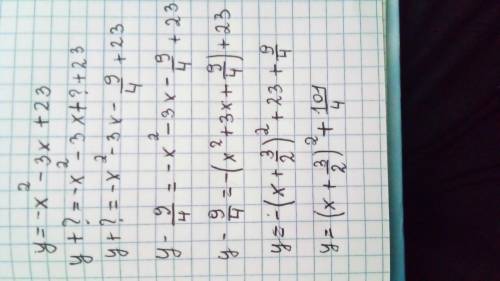 y = -x² - 3x + 23
y + ? = -x² - 3x + ? + 23
y + ? = -x² - 3x - 9/4 + 23
y - 9/4 = -x² - 3x - 9/4 + 23
y - 9/4 = -(x² + 3x + 9/4) + 23
y = -(x + 3/2)² + 23 + 9/4
y = (x + 3/2)² + 101/4